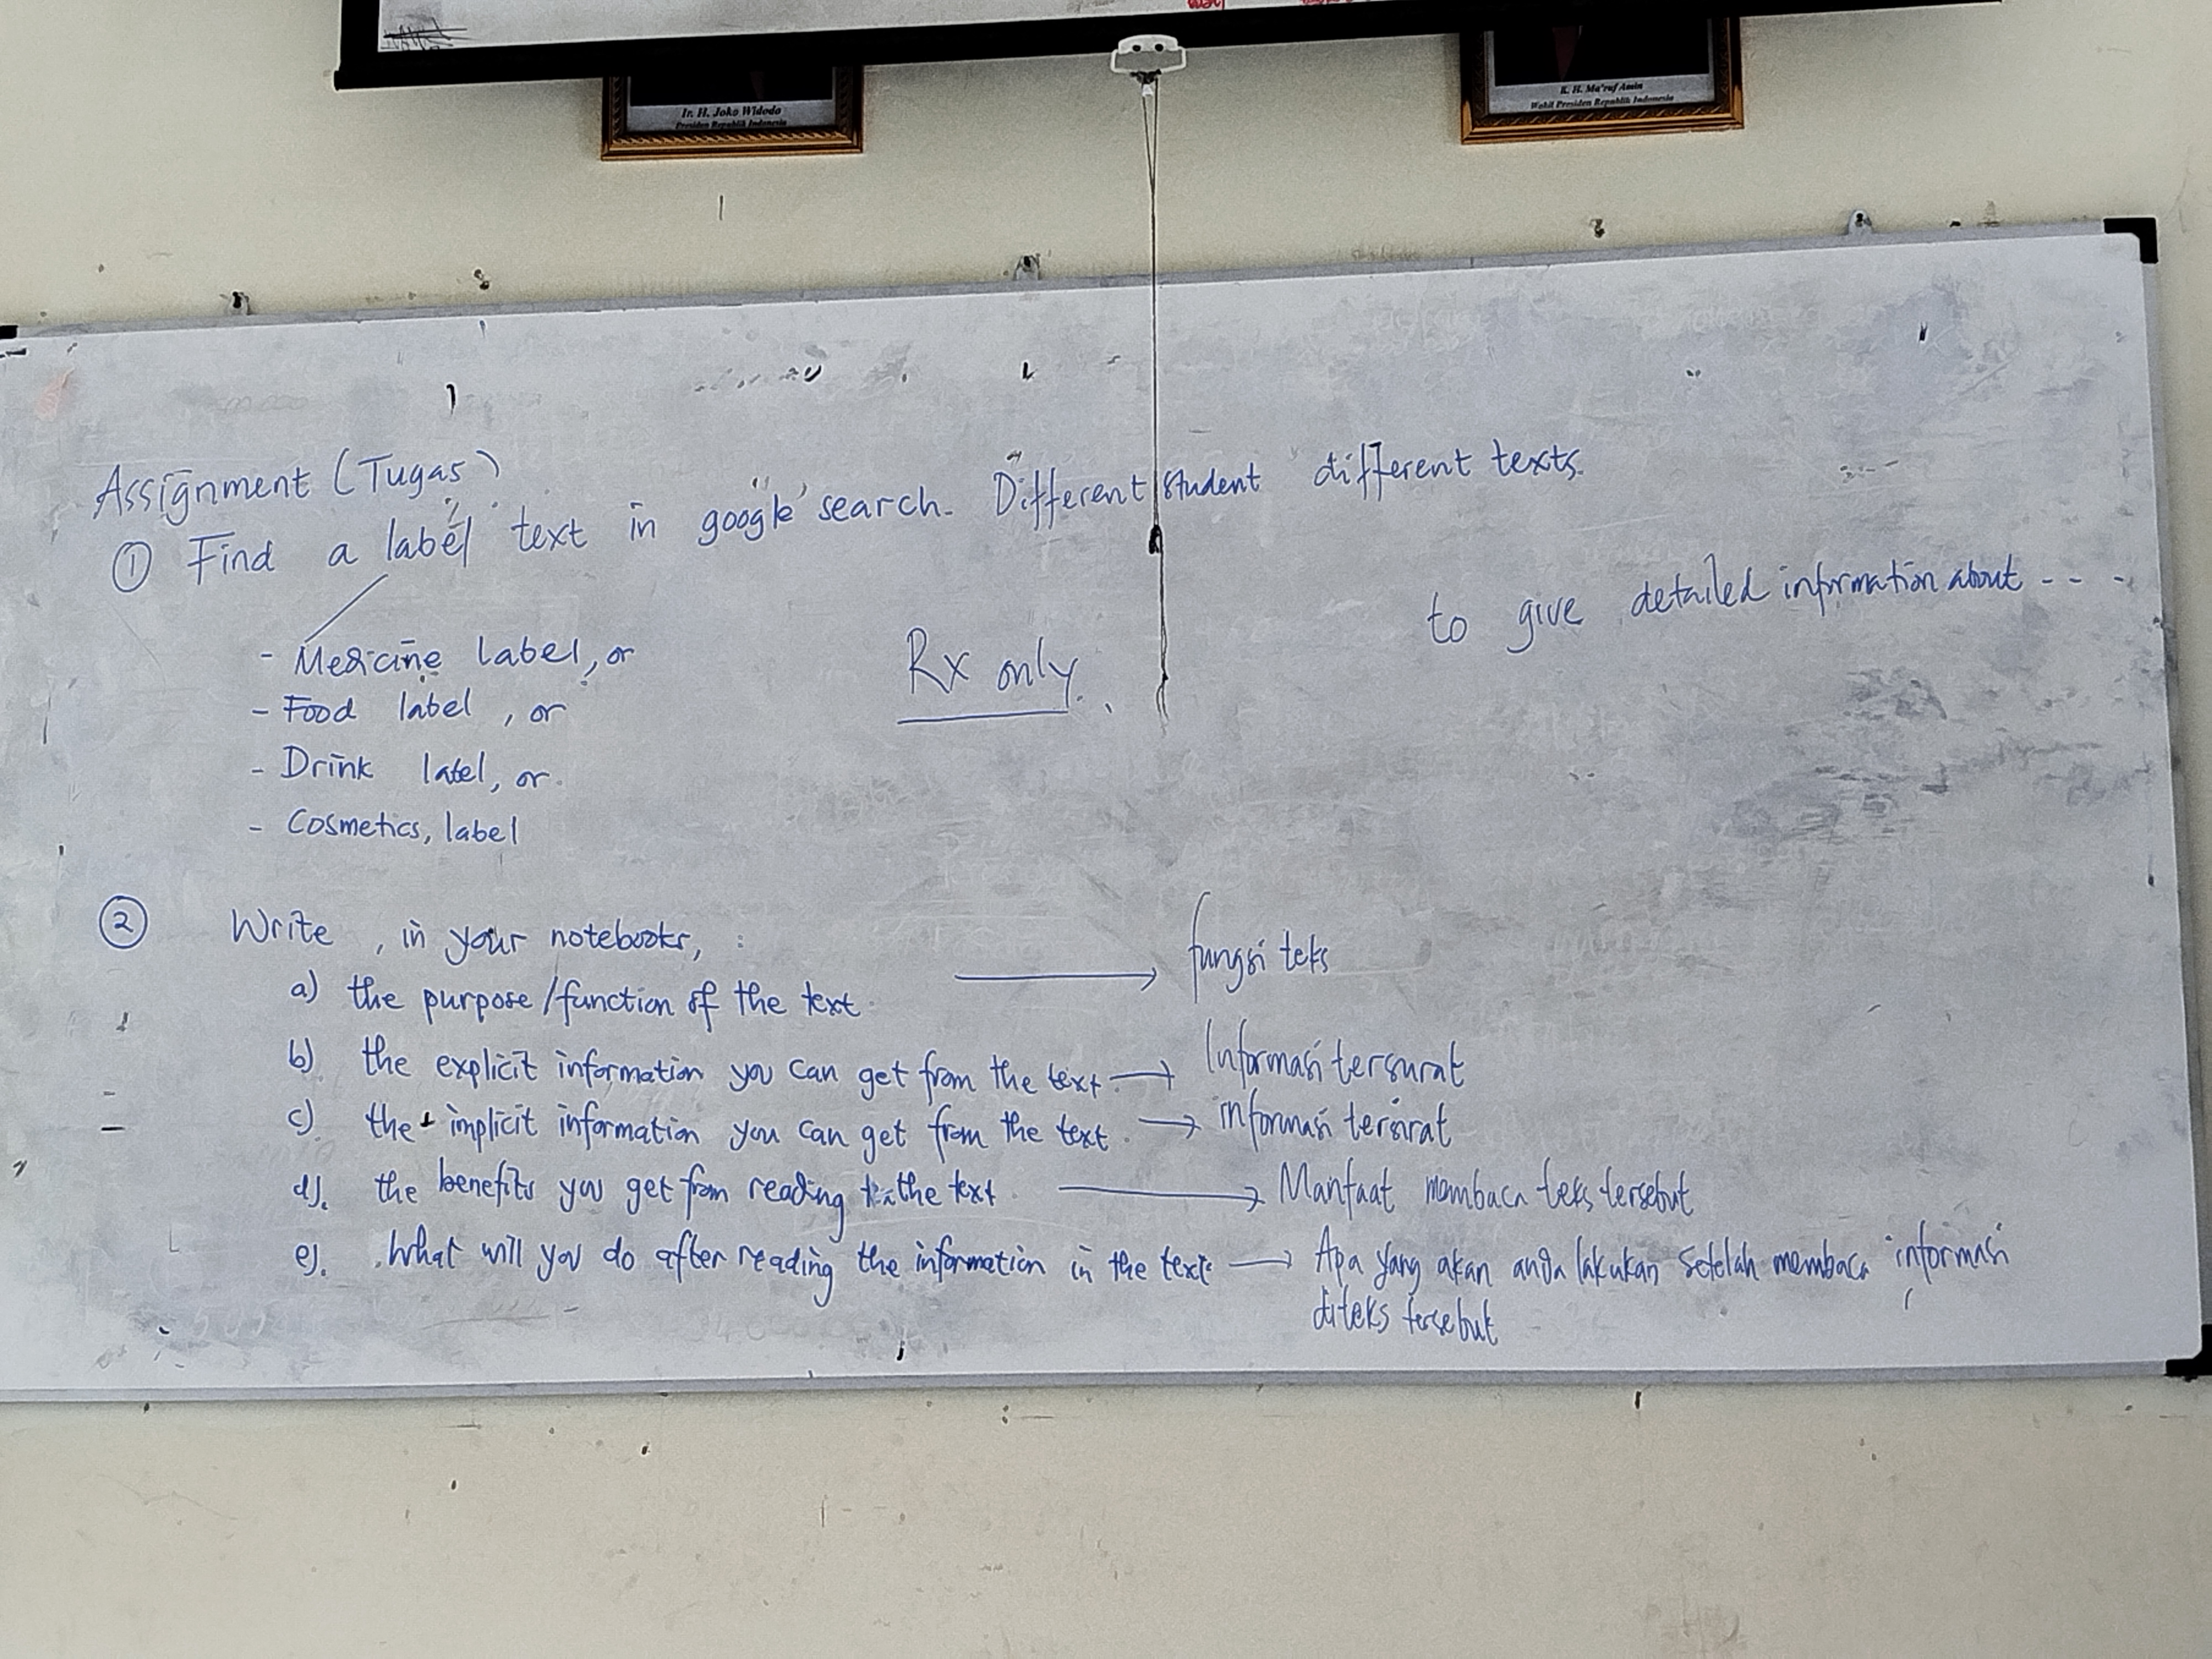 Ir. H. Joko Widodo
Presiden Republik Indonesia
K. H. Ma'ruf Amin
Wakil Presiden Republik Indonesia
Assignment (Tugas)
① Find a label text in google search. Different student different texts.
to give detailed information about - - -
- Medicine label, or
Rx only.
- Food label, or
- Drink label, or
- Cosmetics, label
② Write, in your notebooks, :
a) the purpose/function of the text. → fungsi teks
b) the explicit information you can get from the text. → Informasi tersurat
c) the implicit information you can get from the text. → informasi tersirat
d). the benefits you get from reading the text. → Manfaat membaca teks tersebut
e). What will you do after reading the information in the text → Apa yang akan anda lakukan setelah membaca informasi
diteks tersebut